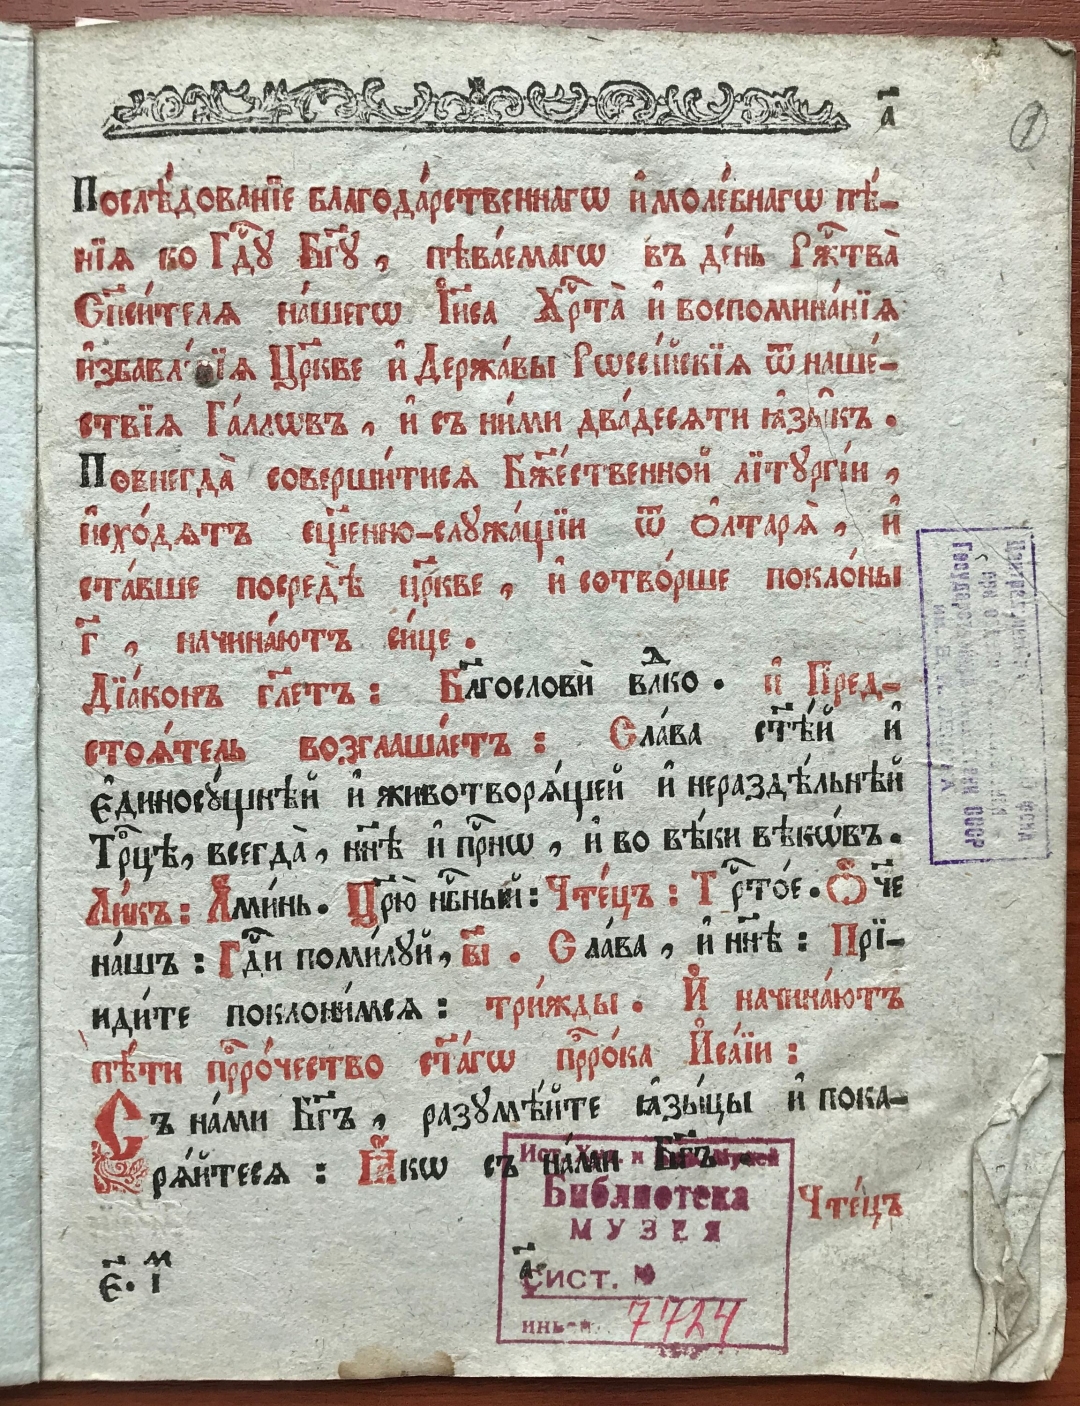 а҃
1
Послѣ́дованїе благода́рственнагѡ и҆ моле́бнагѡ пѣ́-
нїѧ ко Гдⷭ҇ꙋ Бг҃ꙋ, пѣва́емагѡ въ де́нь Ржⷭ҇тва̀
Сп҃си́телѧ на́шегѡ І҆и҃са Хрⷭ҇та̀ и҆ воспомина́нїѧ
и҆збавле́нїѧ Цр҃кве и҆ Держа́вы Рѡссі́йскїѧ ѿ наше́-
ствїѧ Га́ллѡвъ, и҆ съ ни́ми два́десѧти ꙗ҆зы̑къ.
Повнегда̀ соверши́тисѧ Бж҃е́ственной лїтꙋргі́и,
и҆схо́дѧтъ сщ҃е́нно-слꙋжа́щїи ѿ ѻ҆лтарѧ̀, и҆
ста́вше посредѣ̀ цр҃кве, и҆ сотво́рше покло́ны
г҃, начина́ютъ си́це.
Дїа́конъ гл҃етъ: Бл҃гословѝ влⷣко. и҆ Пред-
стоѧ́тель возглаша́етъ: Сла́ва ст҃ѣ́й и҆
є҆диносꙋ́щнѣй и҆ животворѧ́щей и҆ нераздѣ́льнѣй
Трⷪ҇цѣ, всегда̀, нн҃ѣ и҆ прⷭ҇нѡ, и҆ во вѣ́ки вѣкѡ́въ.
Ли́къ: А҆ми́нь. Цр҃ю̀ нбⷭ҇ный: Чте́цъ: Трⷭ҇то́е. Ѻ҆́ч҃е
на́шъ: Гдⷭ҇и поми́лꙋй, в҃і. Сла́ва, и҆ нн҃ѣ: Прїи-
иди́те поклони́мсѧ: три́жды. И҆ начина́ютъ
пѣ́ти прⷪ҇ро́чество ст҃а́гѡ прⷪ҇ро́ка И҆са́їи:
Съ на́ми Бг҃ъ, разꙋмѣ́йте ꙗ҆зы́цы и҆ пока-
рѧ́йтесѧ: Ꙗ҆́кѡ съ на́ми Бг҃ъ.
Чте́цъ
є҃. м і
а҃
Ист. Худ. и Музей
Библиотека
МУЗЕЯ
СИСТ. №
инвен. 7724